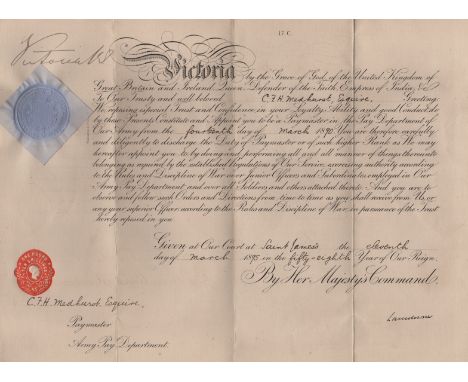 17 C.
Victoria R
Victoria by the Grace of God, of the United Kingdom of
Great Britain and Ireland, Queen, Defender of the Faith, Empress of India, &c
To Our Trusty and well beloved C. F. H. Medhurst, Esquire, Greeting:
We reposing especial Trust and Confidence in your Loyalty, Ability and good Conduct, do
by these Presents Constitute and Appoint you to be a Paymaster in the Pay Department of
Our Army from the fourteenth day of March 1890. You are therefore carefully
and diligently to discharge the Duty of Paymaster or of such higher Rank as We may
hereafter appoint you to by doing and performing all and all manner of things thereunto
belonging as required by the established Regulations of Our Service, exercising authority according
to the Rules and Discipline of War over Junior Officers and Subordinates employed in Our
Army Pay Department and over all Soldiers and others attached thereto. And you are to
observe and follow such Orders and Directions from time to time as you shall receive from Us, or
any your superior Officer according to the Rules and Discipline of War in pursuance of the Trust
hereby reposed in you.
Given at Our Court at Saint James's the eleventh
day of March 1895 in the fifty-eighth Year of Our Reign.
By Her Majesty's Command.
C. F. H. Medhurst, Esquire,
Paymaster
Army Pay Department.